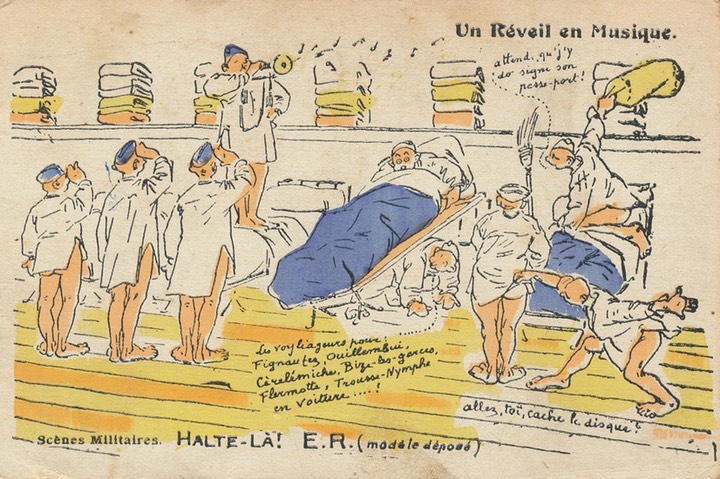 Un Réveil en Musique.
attend, qu' j'y
do' signe son
passe-port!
Les voyliageurs pour:
Fignautes, Ouillembui,
Cèrelémiche, Bize-les-garces,
Flermotte, Trousse-Nymphe
en voiture ....!
allez, toi, cache le disque!
Scènes Militaires. HALTE-LÀ! E.R. (modèle déposé)